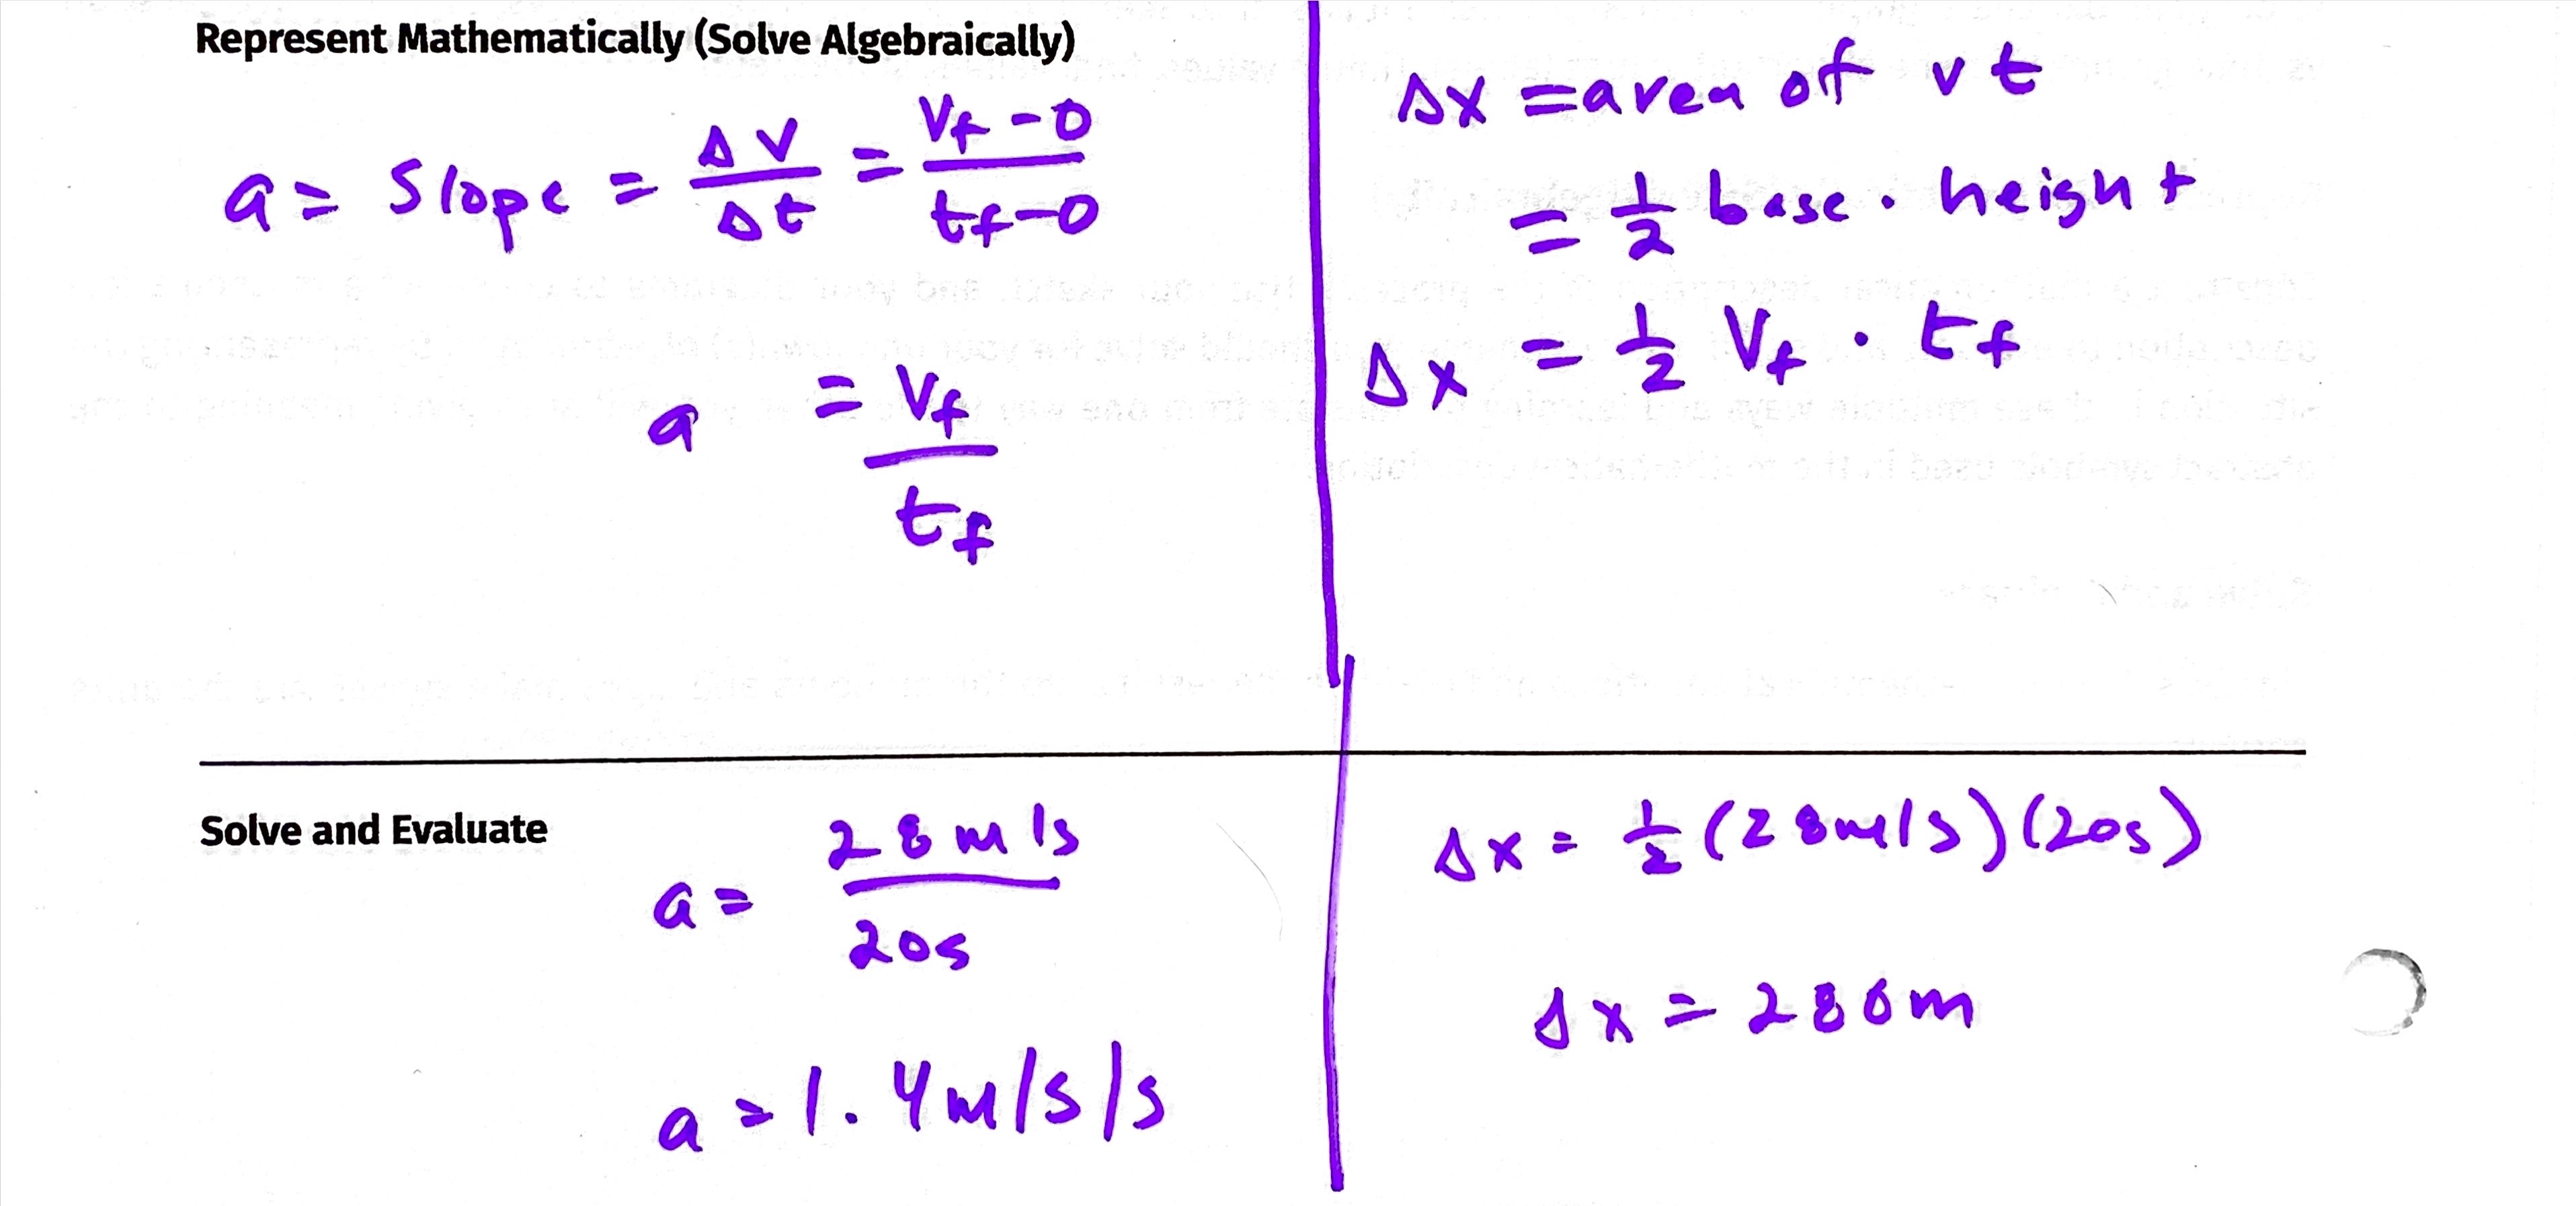 Represent Mathematically (Solve Algebraically)
a = Slope = Δv/Δt = (Vf - 0)/(tf - 0)
a = Vf/tf
Δx = area of v t
= 1/2 base · height
Δx = 1/2 Vf · tf
Solve and Evaluate
a = 28m/s / 20s
a = 1.4m/s/s
Δx = 1/2 (28m/s)(20s)
Δx = 280m